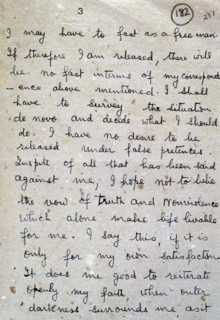 3
182
I may have to fast as a free man.
If therefore I am released, there will
be no fast in terms of my correspond
-ence above mentioned. I shall
have to survey the situation
de novo and decide what I should
do. I have no desire to be
released under false pretences.
Inspite of all that has been said
against me, I hope not to belie
the vow of Truth and Nonviolence
which alone makes life livable
for me. I say this, if it is
only for my own satisfaction.
It does me good to reiterate
openly my faith, when outer
darkness surrounds me, as it